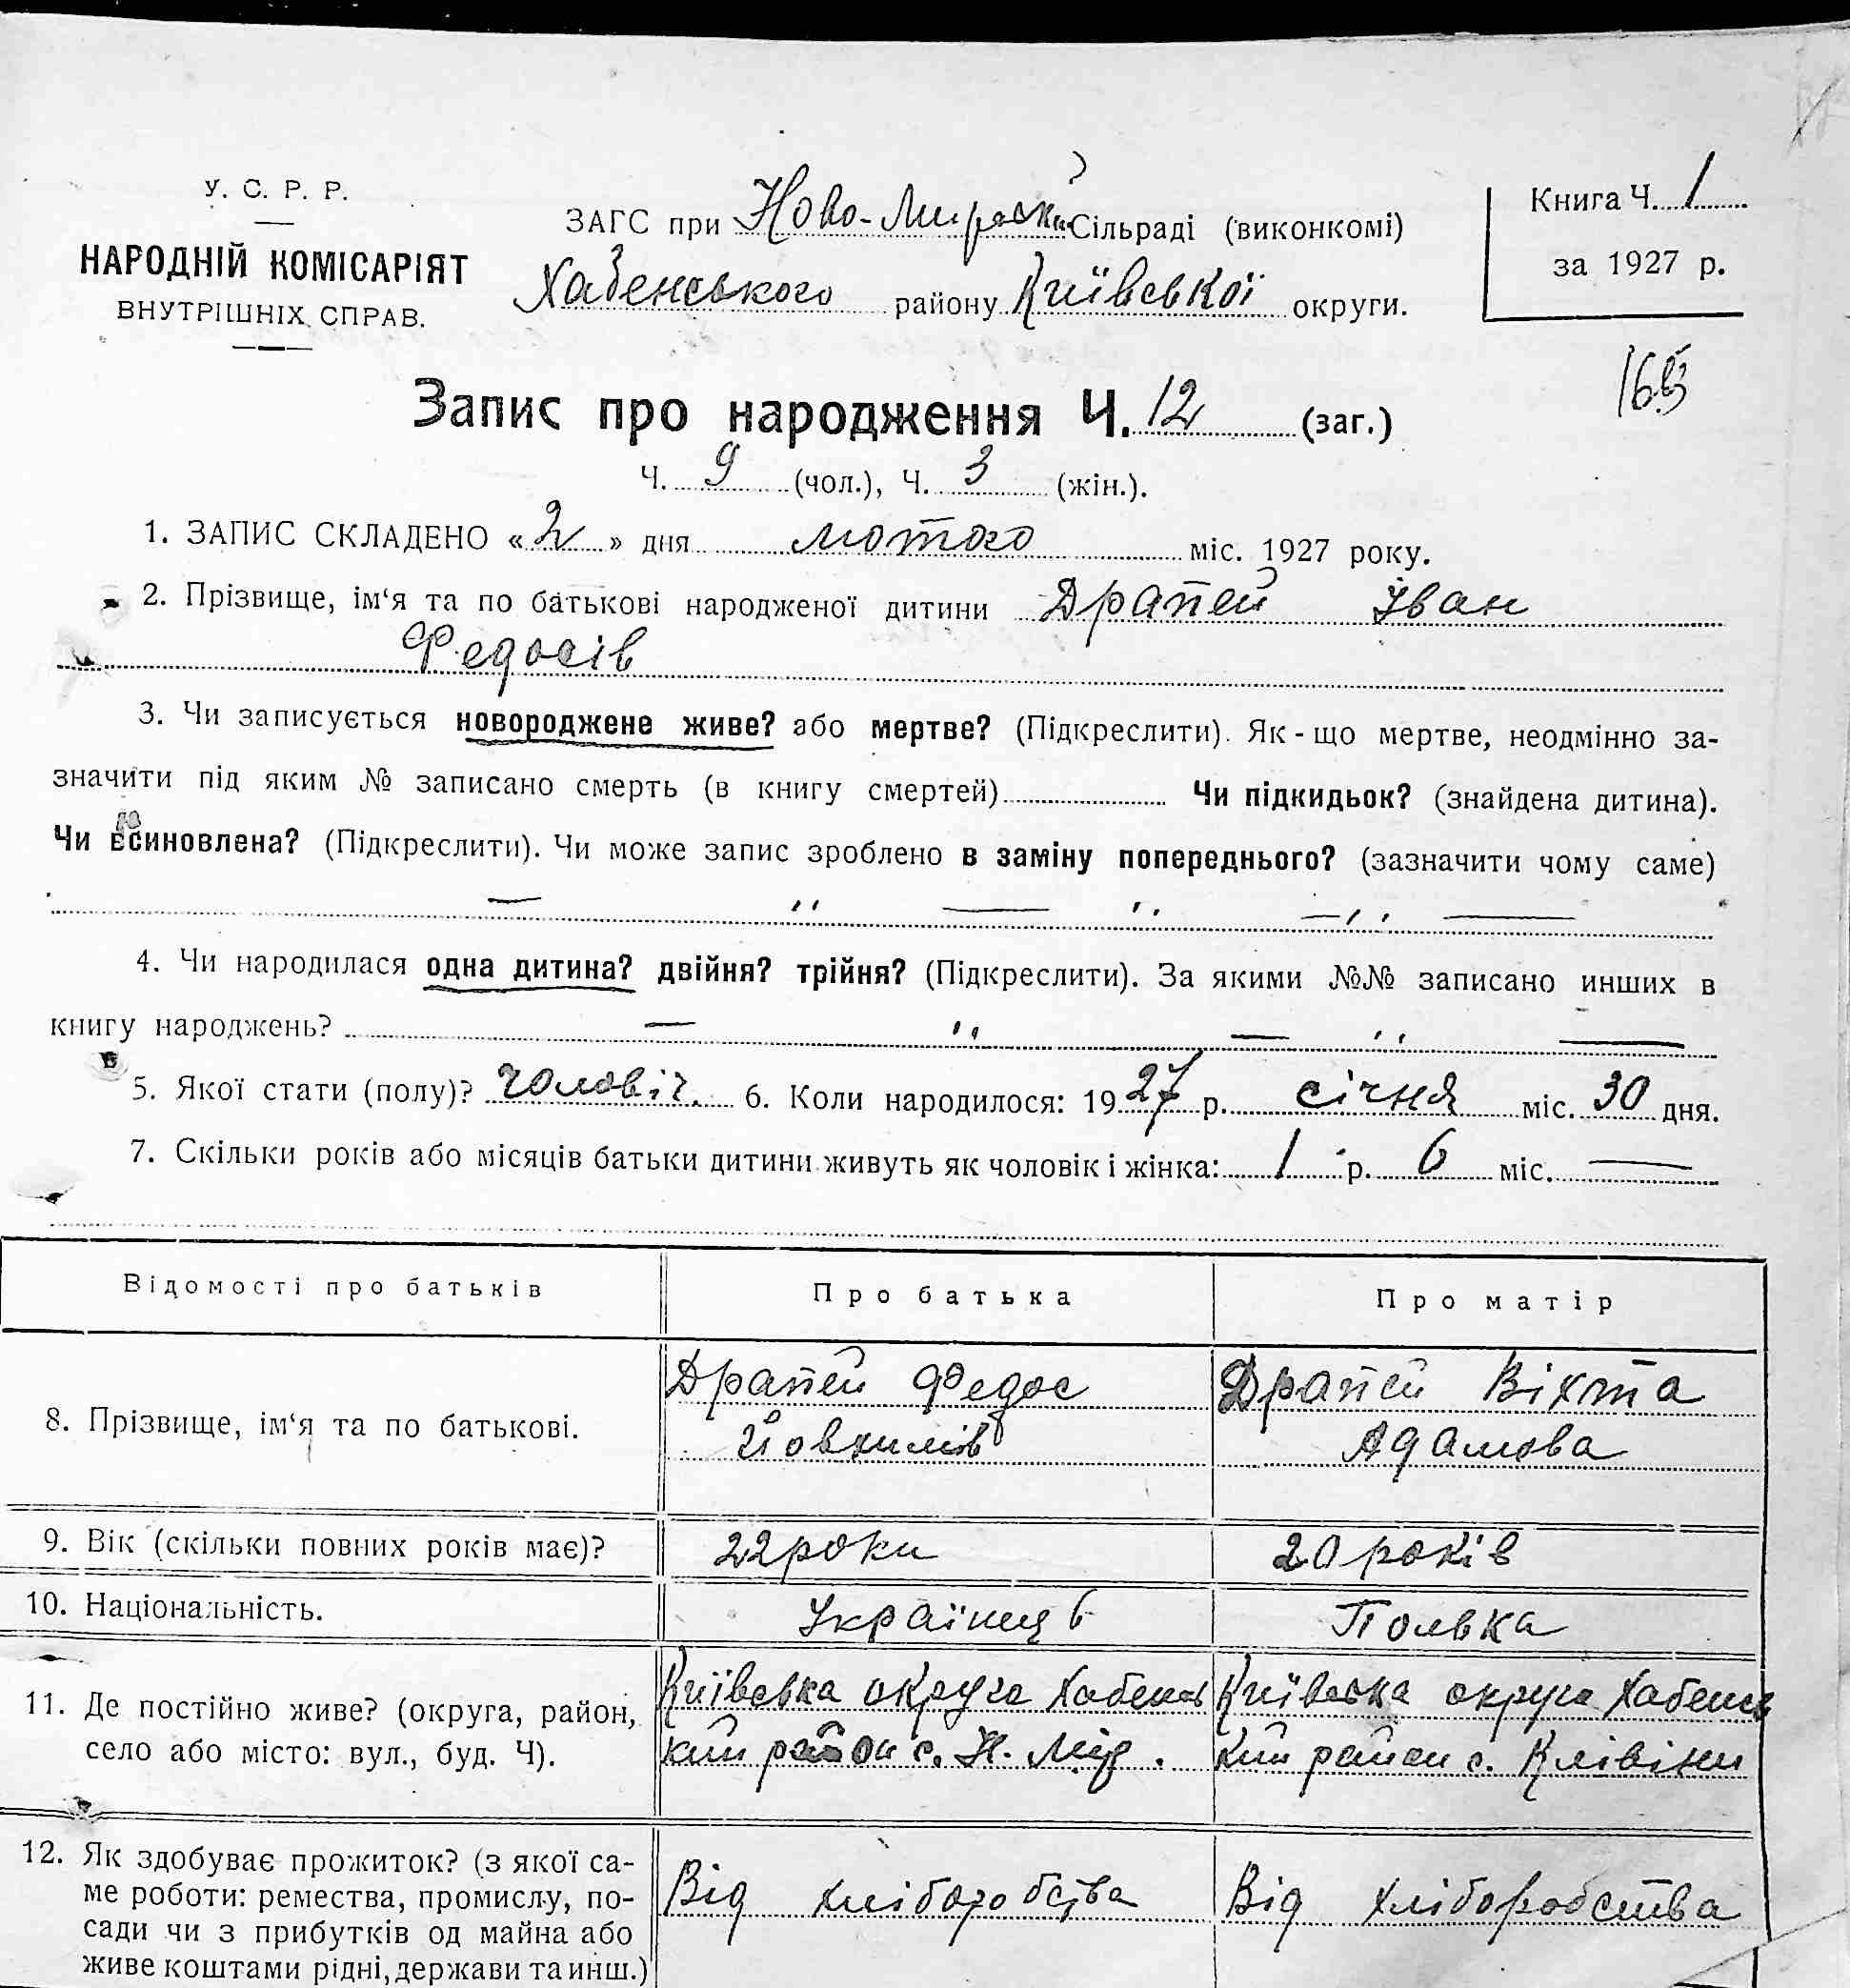 У. С. Р. Р.
НАРОДНІЙ КОМІСАРІЯТ
ВНУТРІШНІХ СПРАВ.
ЗАГС при Ново-Мирській Сільраді (виконкомі)
Хабенського району Київської округи.
Книга Ч. 1
за 1927 р.
Запис про народження Ч. 12 (заг.)
Ч. 9 (чол.), Ч. 3 (жін.).
1. ЗАПИС СКЛАДЕНО « 2 » дня лютого міс. 1927 року.
2. Прізвище, ім‘я та по батькові народженої дитини Драпей Іван
Федосів
3. Чи записується новороджене живе? або мертве? (Підкреслити). Як - що мертве, неодмінно за-
значити під яким № записано смерть (в книгу смертей) Чи підкидьок? (знайдена дитина).
Чи всиновлена? (Підкреслити). Чи може запис зроблено в заміну попереднього? (зазначити чому саме)
4. Чи народилася одна дитина? двійня? трійня? (Підкреслити). За якими №№ записано инших в
книгу народжень?
5. Якої стати (полу)? чоловіч. 6. Коли народилося: 1927 р. січня міс. 30 дня.
7. Скільки років або місяців батьки дитини живуть як чоловік і жінка: 1 р. 6 міс.
Відомості про батьків Про батька Про матір
8. Прізвище, ім‘я та по батькові.
Драпей Федос
Йовхимів
Драпей Віхта
Адамова
9. Вік (скільки повних років має)? 22 роки 20 років
10. Національність. Українць Полька
11. Де постійно живе? (округа, район,
село або місто: вул., буд. Ч).
Київська округа Хабенсь
кий район с. Н. Мир.
Київська округа Хабенсь
кий район с. Клівіни
12. Як здобуває прожиток? (з якої са-
ме роботи: ремества, промислу, по-
сади чи з прибутків од майна або
живе коштами рідні, держави та инш.)
Від хліборобства
Від хліборобства